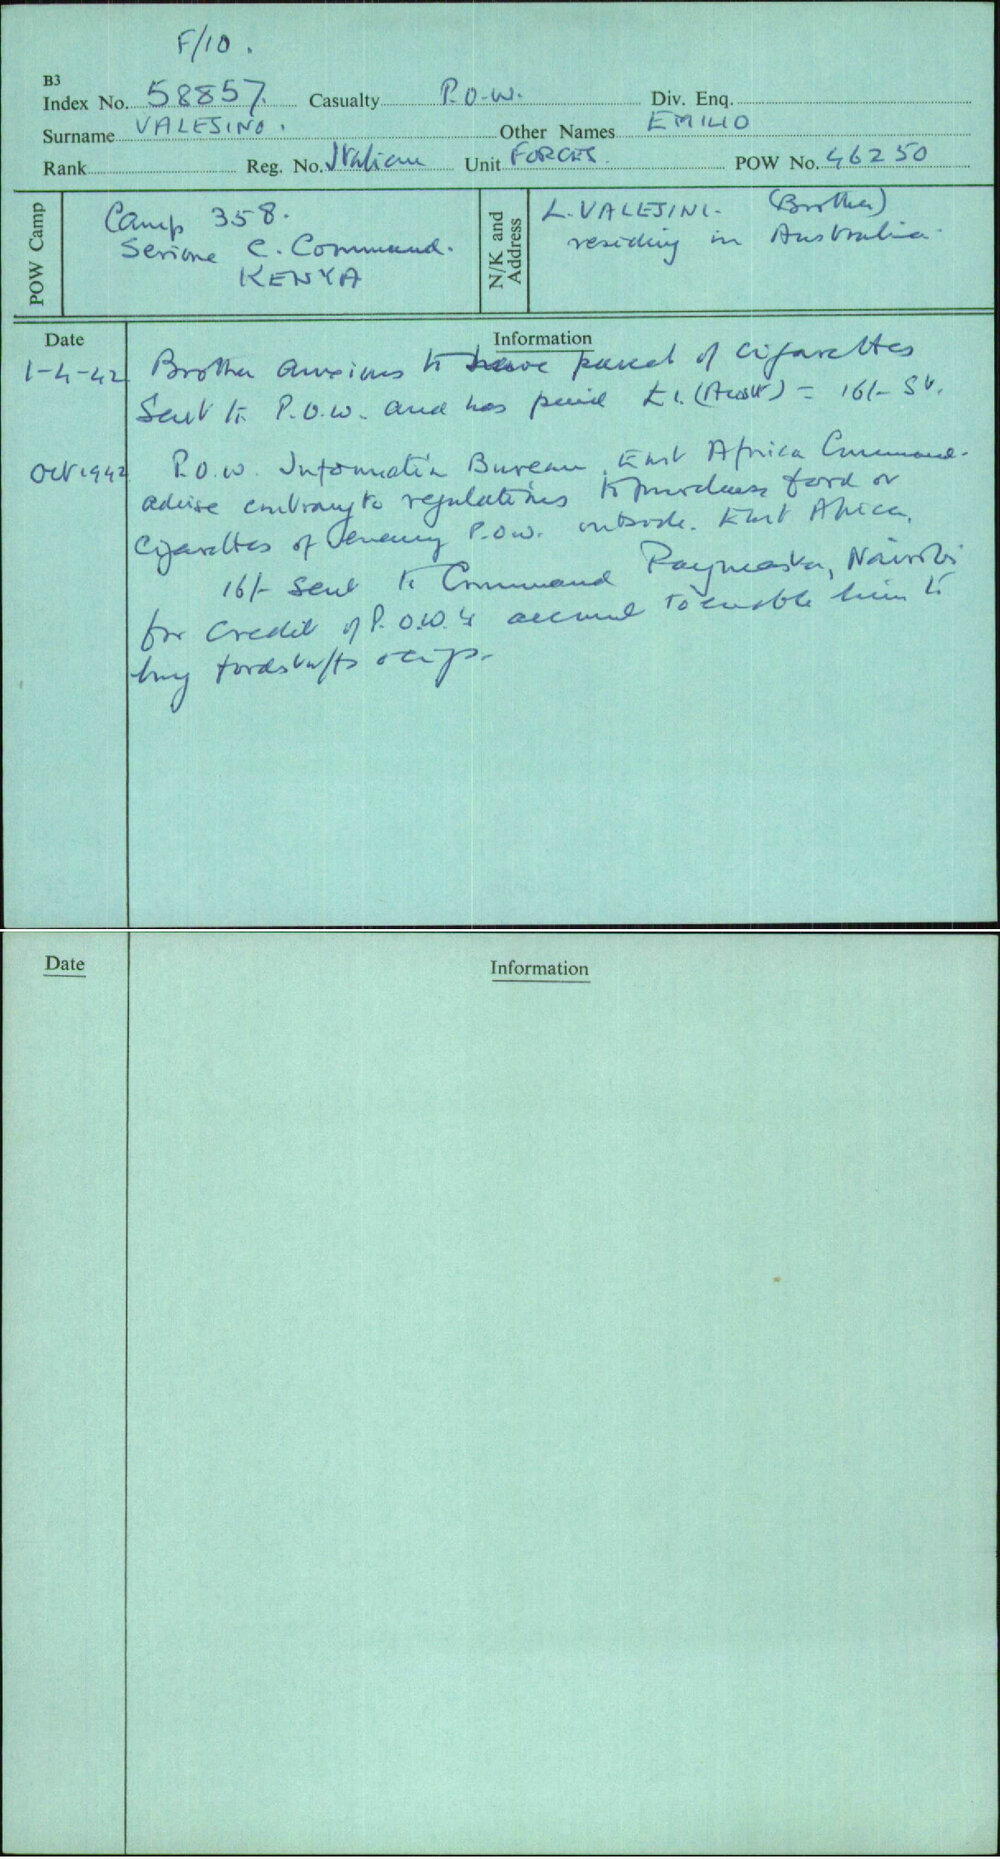 F/10.
B3
Index No. 58857. Casualty P.O.W. Div. Enq.
Surname VALESINO. Other Names EMILIO
Rank Reg. No. Italian Unit FORCES. POW No. 46250
POW Camp
Camp 358.
C. Command.
KENYA
N/K and Address
L. VALESINI. (Brother)
residing in Australia.
Date Information
1-4-42 Brother anxious to have parcel of cigarettes
Sent to P.O.W. and has paid £1. (Aust) = 16/- St.
Oct 1942 P.O.W. Information Bureau, East Africa Command.
advise contrary to regulations to purchase food or
cigarettes of enemy P.O.W. outside. East Africa.
16/- sent to Command Paymaster, Nairobi
for credit of P.O.W.'s account to enable him to
buy foodstuffs or cigs.
Date Information